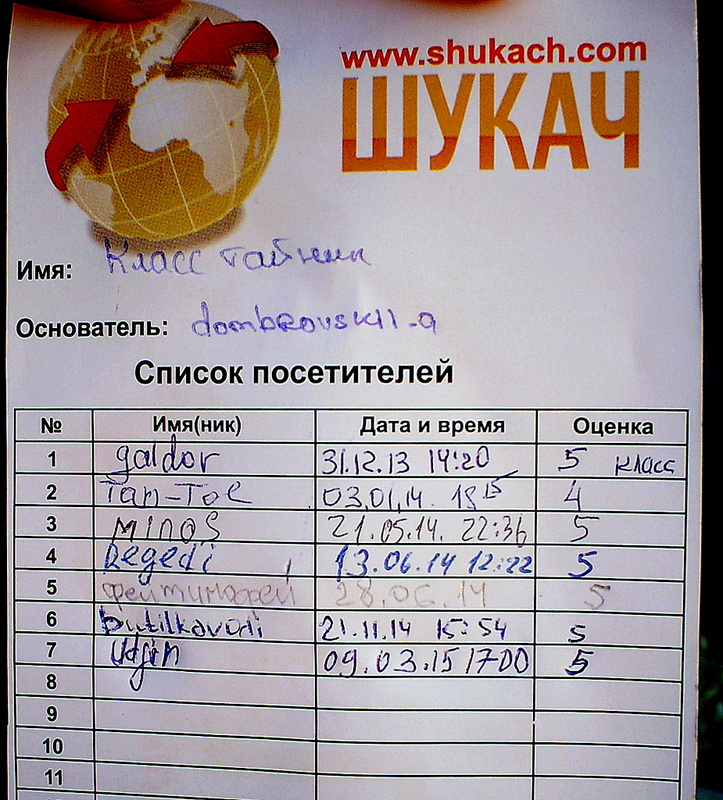 www.shukach.com
ШУКАЧ
Имя: Класс тайник
Основатель: dombrovskii-a
Список посетителей
№ Имя(ник) Дата и время Оценка
1 galdor 31.12.13 14:20 5 класс
2 Tan-Tol 03.01.14. 18 15 4
3 minos 21.05.14. 22:36 5
4 Regedi 13.06.14 12:22 5
5 28.06.14 5
6 butilkavodi 21.11.14 15:54 5
7 09.03.15 1700 5
8
9
10
11